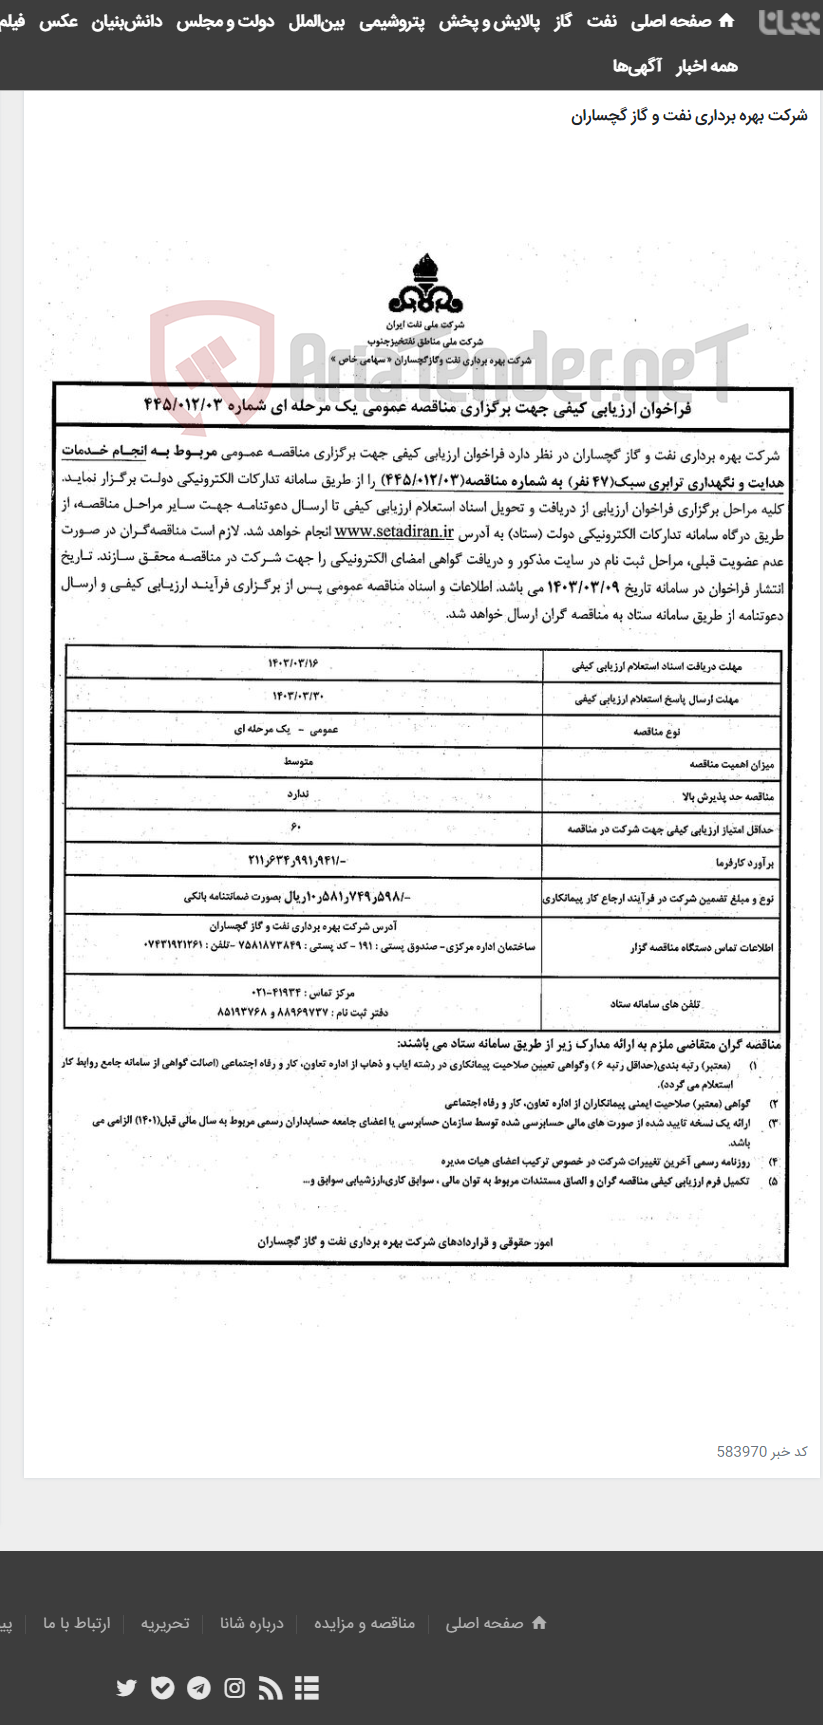 شانا
صفحه اصلی نفت گاز پالایش و پخش پتروشیمی بین‌الملل دولت و مجلس دانش‌بنیان عکس فیلم
همه اخبار آگهی‌ها
شرکت بهره برداری نفت و گاز گچساران
شرکت ملی نفت ایران
شرکت ملی مناطق نفتخیزجنوب
شرکت بهره برداری نفت وگازگچساران « سهامی خاص »
AriaTender.neT
فراخوان ارزیابی کیفی جهت برگزاری مناقصه عمومی یک مرحله ای شماره ۴۴۵/۰۱۲/۰۳
شرکت بهره برداری نفت و گاز گچساران در نظر دارد فراخوان ارزیابی کیفی جهت برگزاری مناقصه عمومی مربوط به انجام خدمات
هدایت و نگهداری ترابری سبک(۴۷ نفر) به شماره مناقصه(۴۴۵/۰۱۲/۰۳) را از طریق سامانه تدارکات الکترونیکی دولت برگزار نماید.
کلیه مراحل برگزاری فراخوان ارزیابی از دریافت و تحویل اسناد استعلام ارزیابی کیفی تا ارسال دعوتنامه جهت سایر مراحل مناقصه، از
طریق درگاه سامانه تدارکات الکترونیکی دولت (ستاد) به آدرس www.setadiran.ir انجام خواهد شد. لازم است مناقصه‌گران در صورت
عدم عضویت قبلی، مراحل ثبت نام در سایت مذکور و دریافت گواهی امضای الکترونیکی را جهت شرکت در مناقصه محقق سازند. تاریخ
انتشار فراخوان در سامانه تاریخ ۱۴۰۳/۰۳/۰۹ می باشد. اطلاعات و اسناد مناقصه عمومی پس از برگزاری فرآیند ارزیابی کیفی و ارسال
دعوتنامه از طریق سامانه ستاد به مناقصه گران ارسال خواهد شد.
مهلت دریافت اسناد استعلام ارزیابی کیفی ۱۴۰۳/۰۳/۱۶
مهلت ارسال پاسخ استعلام ارزیابی کیفی ۱۴۰۳/۰۳/۳۰
نوع مناقصه عمومی - یک مرحله ای
میزان اهمیت مناقصه متوسط
مناقصه حد پذیرش بالا ندارد
حداقل امتیاز ارزیابی کیفی جهت شرکت در مناقصه ۶۰
برآورد کارفرما ۲۱۱٫۶۳۴٫۹۹۱٫۹۴۱/-
نوع و مبلغ تضمین شرکت در فرآیند ارجاع کار پیمانکاری ۱۰٫۵۸۱٫۷۴۹٫۵۹۸/- ریال بصورت ضمانتنامه بانکی
اطلاعات تماس دستگاه مناقصه گزار آدرس شرکت بهره برداری نفت و گاز گچساران
ساختمان اداره مرکزی- صندوق پستی : ۱۹۱ - کد پستی : ۷۵۸۱۸۷۳۸۴۹ -تلفن : ۰۷۴۳۱۹۲۱۲۶۱
تلفن های سامانه ستاد مرکز تماس : ۴۱۹۳۴-۰۲۱
دفتر ثبت نام : ۸۸۹۶۹۷۳۷ و ۸۵۱۹۳۷۶۸
مناقصه گران متقاضی ملزم به ارائه مدارک زیر از طریق سامانه ستاد می باشند:
۱) (معتبر) رتبه بندی(حداقل رتبه ۶ ) وگواهی تعیین صلاحیت پیمانکاری در رشته ایاب و ذهاب از اداره تعاون، کار و رفاه اجتماعی (اصالت گواهی از سامانه جامع روابط کار
استعلام می گردد).
۲) گواهی (معتبر) صلاحیت ایمنی پیمانکاران از اداره تعاون، کار و رفاه اجتماعی
۳) ارائه یک نسخه تایید شده از صورت های مالی حسابرسی شده توسط سازمان حسابرسی یا اعضای جامعه حسابداران رسمی مربوط به سال مالی قبل(۱۴۰۱) الزامی می
باشد.
۴) روزنامه رسمی آخرین تغییرات شرکت در خصوص ترکیب اعضای هیات مدیره
۵) تکمیل فرم ارزیابی کیفی مناقصه گران و الصاق مستندات مربوط به توان مالی ، سوابق کاری،ارزشیابی سوابق و...
امور حقوقی و قراردادهای شرکت بهره برداری نفت و گاز گچساران
کد خبر 583970
صفحه اصلی مناقصه و مزایده درباره شانا تحریریه ارتباط با ما